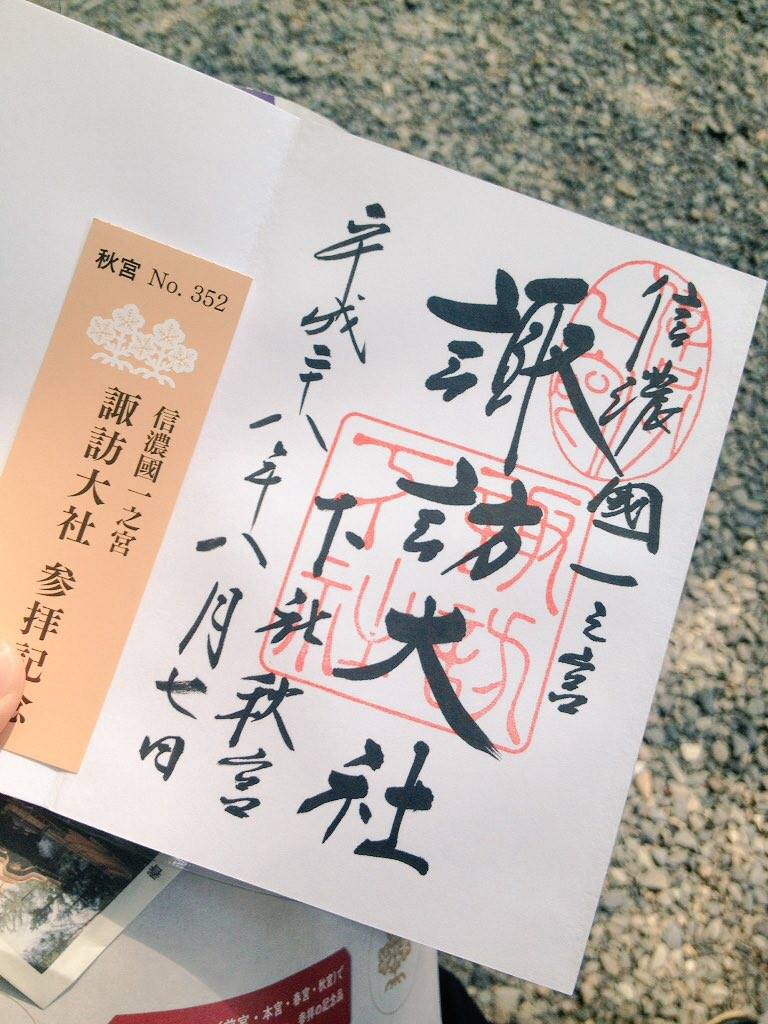 信濃國一之宮
諏訪大社
下社秋宮
平成二十八年八月七日
秋宮 No. 352
信濃國一之宮
諏訪大社 参拝記念
本宮・春宮・秋宮)で
参拝の記念品